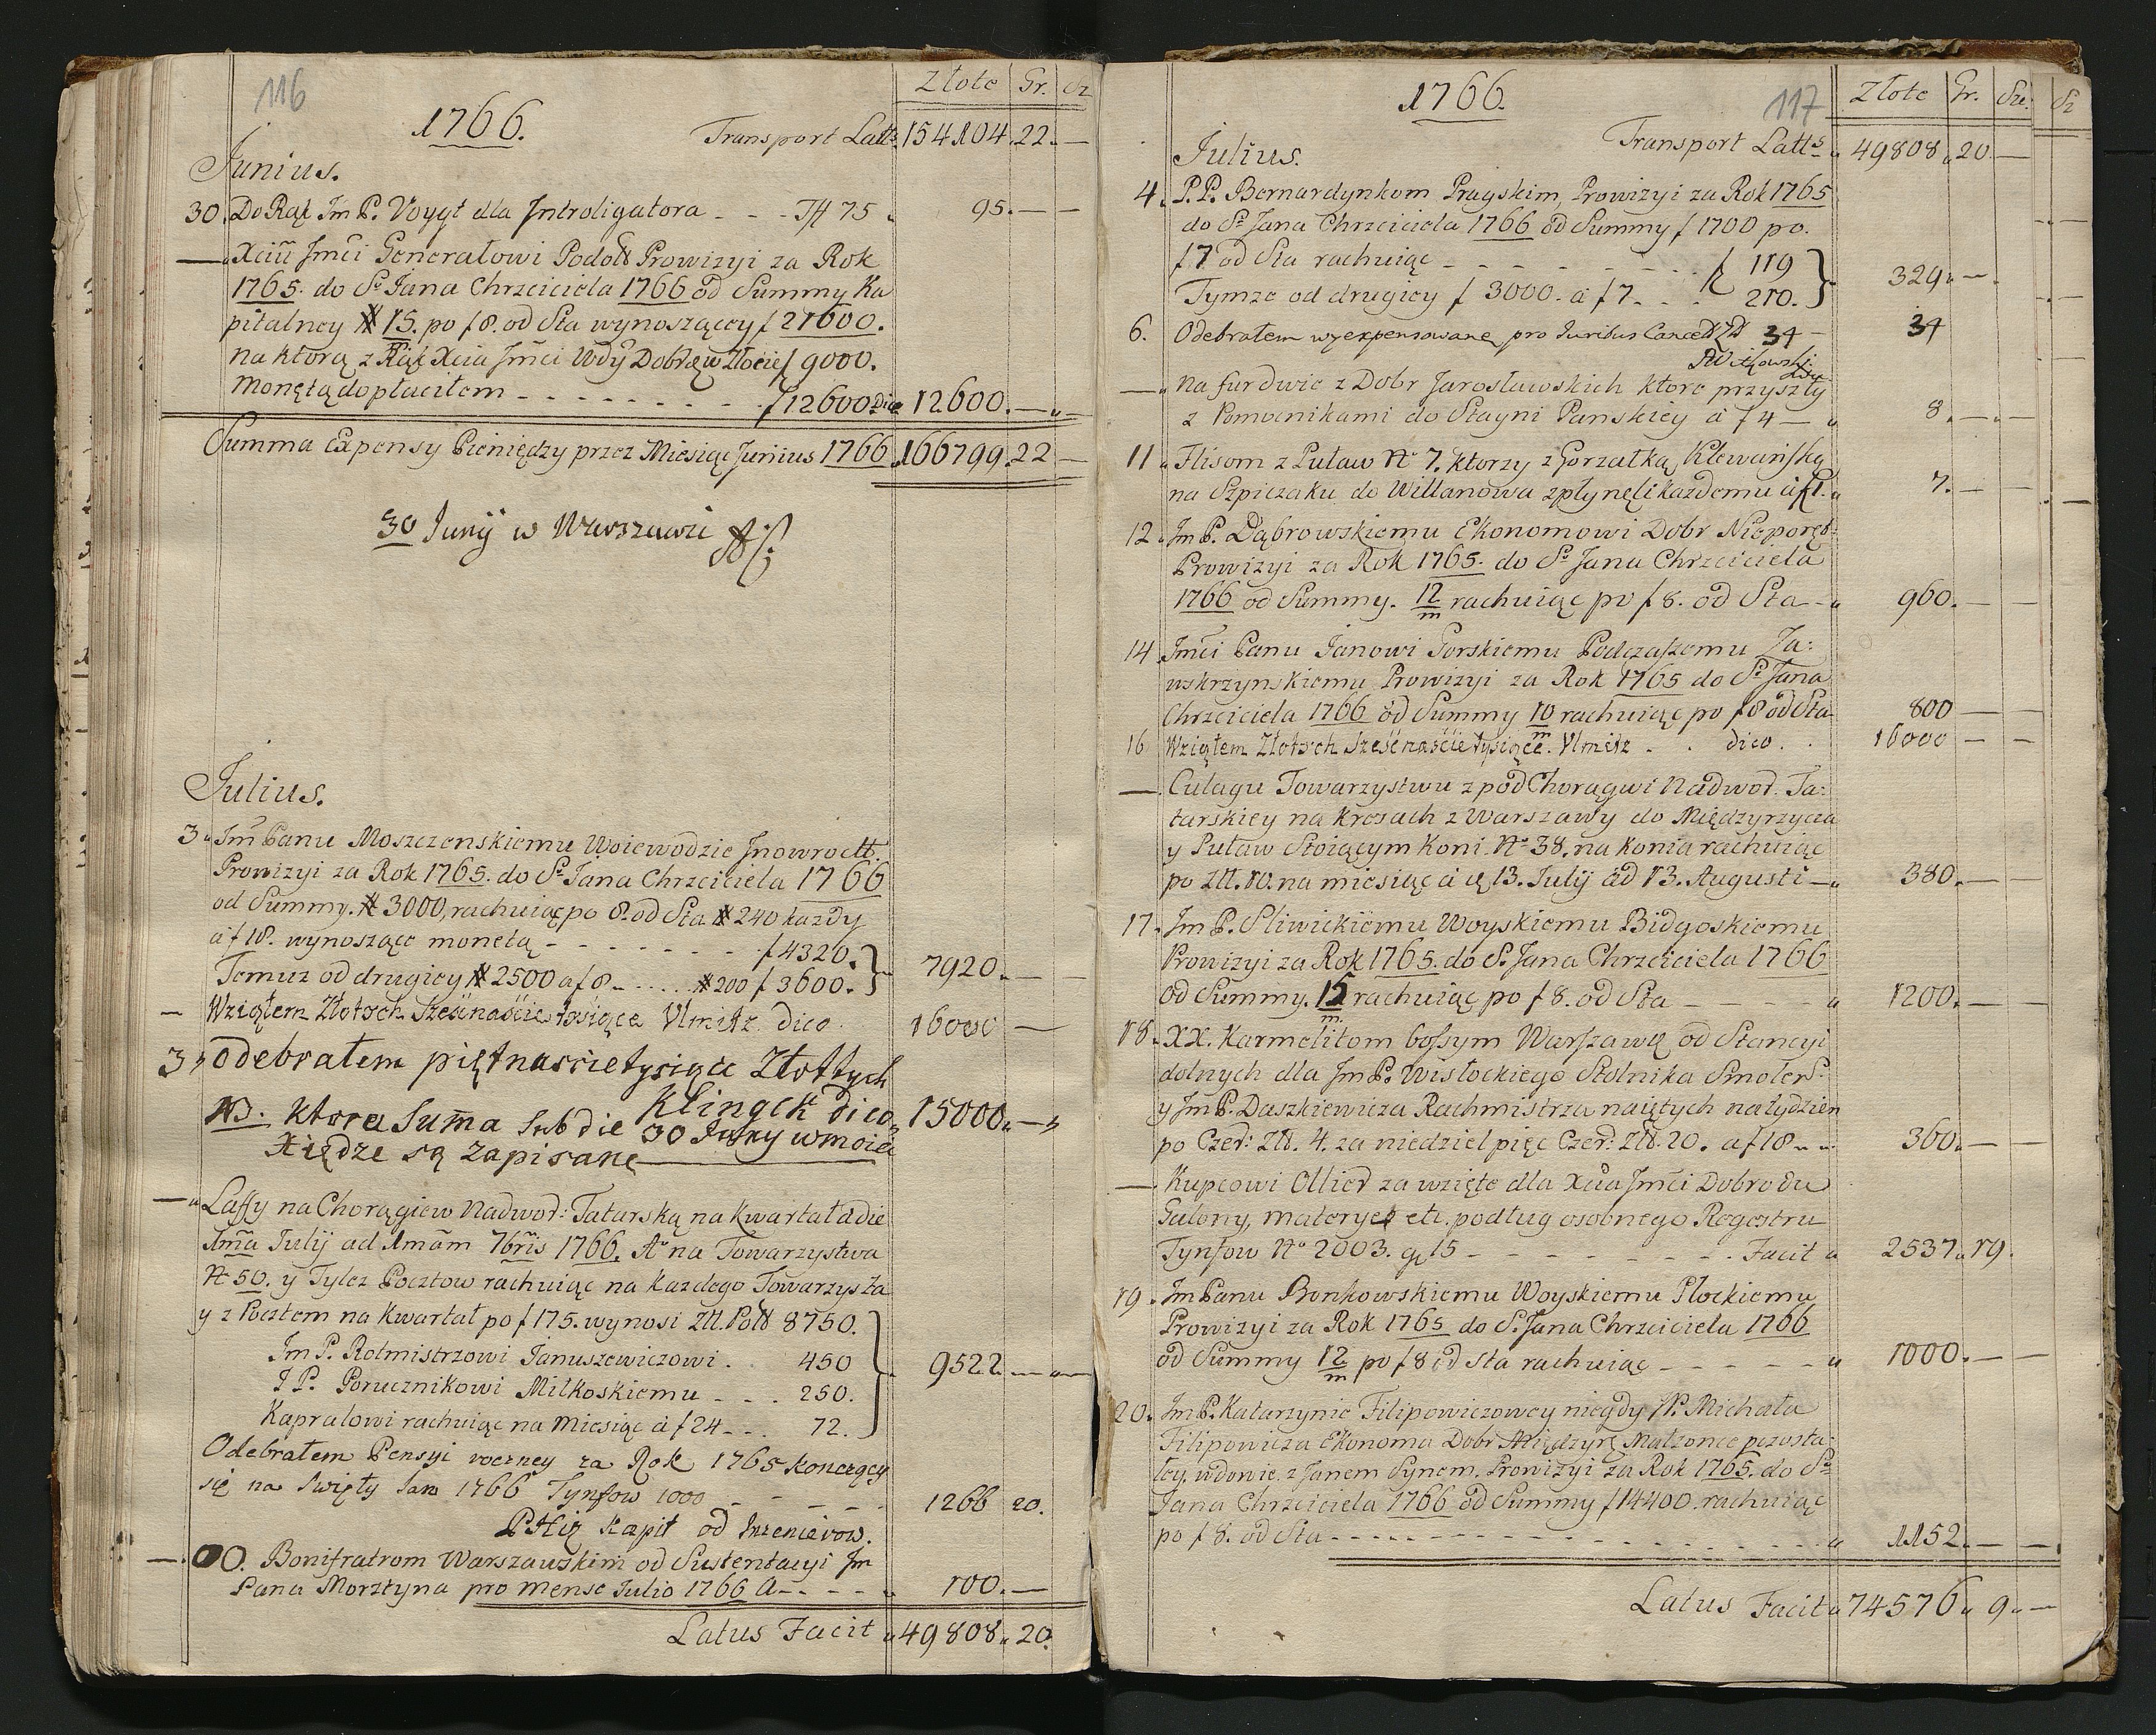 116
1766.
Złote Gr. Sz
Transport Latts 154104. 22. —
Junius.
30. Do Rąk Jm P. Voygt dla Introligatora - - - Tff 75 95. — —
— Xciu Jmci Generałowi Podol Prowizyi za Rok
1765. do S° Jana Chrzciciela 1766 od Summy Ka
pitalney # 15. po f 8. od Sta wynoszącey f 21600.
na ktorą z Rąk Xcia Jmci Wdy Dobr. w Złocie f 9000.
Monętą dopłaciłem - - - - - - - - f 12600 Dico 12600. —
Summa Expensy Pieniędzy przez Miesiąc Junius 1766. 166799. 22 —
30 Junij w Warszawie
Julius.
3. Jm Panu Moszczenskiemu Woiewodzie Jnowrocłt.
Prowizyi za Rok 1765. do S° Jana Chrzciciela 1766
od Summy. # 3000, rachuiąc po 8. od Sta # 240 każdy
a f 18. wynosząco monetą - - - - - - - f 4320.
Temuz od drugiey # 2500 a f 8 - ..... # 200 f 3600. 7920. — —
— Wziąłem Złotych Szesnascie tysiące Vlmitz dico. 16000 —
3, Odebrałem piętnascie tysiące Złottych
Klingek dico, 15000. —
NB. Ktora Suma sub die 30 Juny w moiei
Xiędze są Zapisane
— Laffy na Chorągiew Nadwod: Tatarską na Kwartał a die
1ma Julij ad 1mam 7bris 1766. A° na Towarzystwa
N° 50. y Tylez Pocztow rachuiąc na każdego Towarzysza
y z Pocztem na Kwartał po f 175. wynosi Zll. Poll 8750.
Jm P. Rotmistrzowi Januszewiczowi . 450 9522. — —
J P. Porucznikowi Miłkoskiemu - - . 250.
Kapralowi rachuiąc na Miesiąc a f 24 - - . 72.
Odebrałem Pensyi roczney za Rok 1765 Konczącey
się na Swięty Jan 1766 Tynfow 1000 - - - - - 1266 20.
P Hiz Kapit od Inzenierow.
— OO. Bonifratrom Warszawskim od Sustentacyi Jm
Pana Morztyna pro Mense Julio 1766 A - - - - 100. —
Latus Facit 49808. 20.
1766.
117
Złote Gr. Sze. Sz
Transport Latts 49808. 20. —
Julius.
4. P.P. Bernardynkom Pragskim, Prowizyi za Rok 1765
do S° Jana Chrzciciela 1766 od Summy f 1700 po.
f 7 od Sta rachuiąc - - - - - - - - f 119 329. —
Tymze od drugiey f 3000. a f 7. . . 210.
6. Odebrałem wyexpensowane pro Juribus Cancell Zll 34 — 34
— Na furdwie z Dobr Jarosławskich ktore przyszły
z Pomocnikami do Stayni Panskiey a f 4 — 8. — —
11. Flisom z Puław N° 7. ktorzy z Gorzałką Klewańską
na Szpiczaku do Willanowa zpłyneli każdemu a f 1. 7. — —
12. Jm P. Dąbrowskiemu Ekonomowi Dobr Nieporęt:
Prowizyi za Rok 1765. do S° Jana Chrzciciela
1766 od Summy. 12/m rachuiąc po f 8. od Sta — 960. — —
14. Jmci Panu Janowi Gorskiemu Podczaszemu Za:
wskrzynskiemu Prowizyi za Rok 1765 do S° Jana
Chrzciciela 1766 od Summy 10/m rachuiąc po f 8 od Sta 800 — —
16 Wziąłem Złotych Szesnaście tysiące. Vlmitz . . dico. . 16000 — —
— Culagu Towarzystwu z pod Chorągwi Nadwod. Ta:
tarskiey na Kresach z Warszawy do Międzyrzycza
y Puław Stoiącym Koni N° 38. na konia rachuiąc
po Zll. 10. na miesiąc a q 13. Julij ad 13. Augusti — 380. — —
17. Jm P. Sliwickiemu Woyskiemu Bidgoskiemu
Prowizyi za Rok 1765. do S. Jana Chrzciciela 1766
od Summy. 15/m rachuiąc po f 8. od Sta - - - - 1200. — —
18. XX. Karmelitom bossym Warszawę od Stancyi
dolnych dla Jm P. Wisłockiego Stolnika Smolen.
y Jm P. Daszkiewicza Rachmistrza naiętych na tydzien
po Czer: Zll. 4. za niedziel pięc Czer: Zll. 20. a f 18 360. — —
— Kupcowi Ollier za wzięte dla Xcia Jmci Dobrodu
Galony, Materye etc. podług osobnego Regestru
Tynfow N° 2003. g 15 - - - - - - - - Facit 2537. 19.
19. Jm Panu Bronkowskiemu Woyskiemu Płockiemu
Prowizyi za Rok 1765 do S. Jana Chrzciciela 1766
od Summy 12/m po f 8 od sta rachuiąc - - - - - 1000. — —
20. Jm P. Katarzynie Filipowiczowey niegdy JP. Michała
Filipowicza Ekonoma Dobr Międzyrz Małzonce pozosta:
łey wdowie z Janem Synem. Prowizyi za Rok 1765. do S°
Jana Chrzciciela 1766 od Summy f 14400. rachuiąc
po f 8. od Sta - - - - - - - - - - 1152. — —
Latus Facit 74576. 9. —